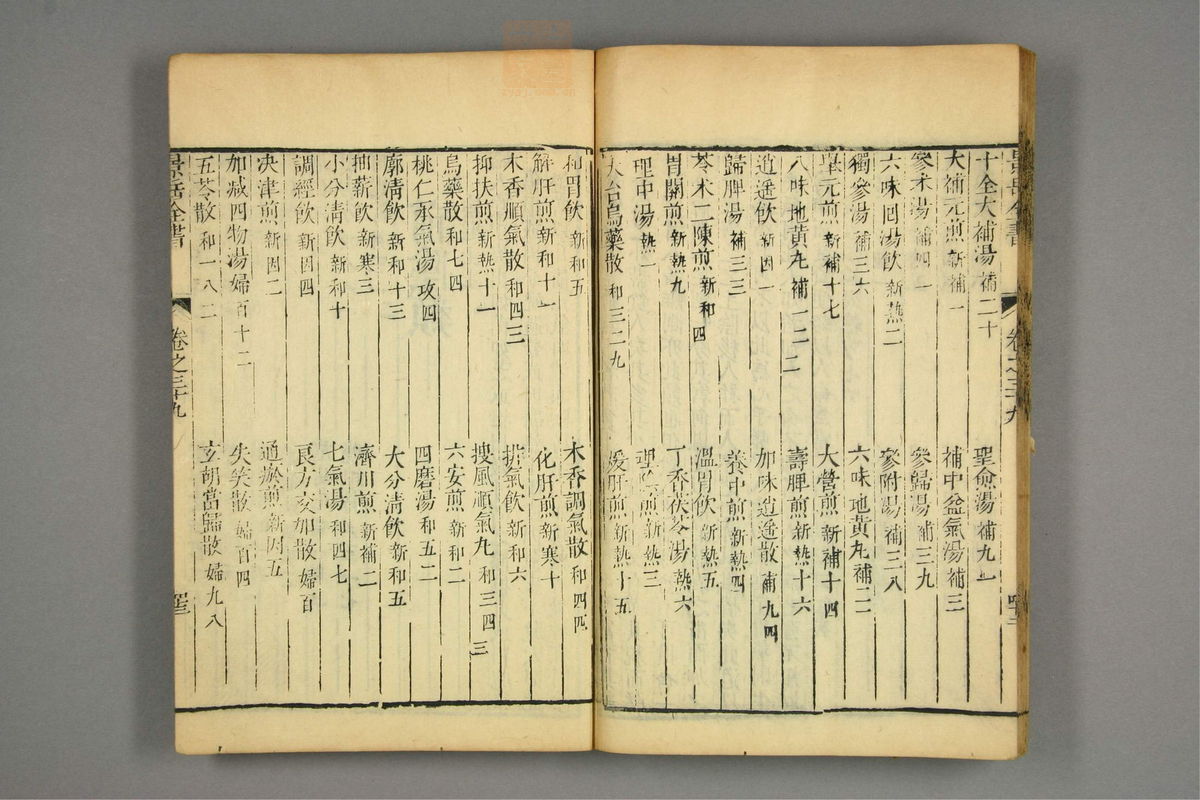 十全大補湯 補二十 聖愈湯 補九十
大補元煎 新補一 補中益氣湯 補三
參朮湯 補四一 參歸湯 補三九
六味回湯飲 新熱二 參附湯 補三八
獨參湯 補三六 六味地黃丸 補二二
舉元煎 新補十七 大營煎 新補十四
八味地黃丸 補一二二 壽脾煎 新熱十六
逍遙飲 新因一 加味逍遙散 補九四
歸脾湯 補三三 養中煎 新熱四
苓朮二陳煎 新和四 溫胃飲 新熱五
胃關煎 新熱九 丁香茯苓湯 熱六
理中湯 熱一 理陰煎 新熱三
天台烏藥散 和三二九 煖肝煎 新熱十五
和胃飲 新和五 木香調氣散 和四四
解肝煎 新和十一 化肝煎 新寒十
木香順氣散 和四三 排氣飲 新和六
抑扶煎 新熱十一 搜風順氣丸 和三四三
烏藥散 和七四 六安煎 新和二
桃仁承氣湯 攻四 四磨湯 和五二
廓清飲 新和十三 大分清飲 新和五
抽薪飲 新寒三 濟川煎 新補二
小分清飲 新和十 七氣湯 和四七
調經飲 新因四 良方交加散 婦百
決津煎 新因二 通瘀煎 新因五
加減四物湯 婦百十二 失笑散 婦百四
五苓散 和一八二 玄胡當歸散 婦九八
景岳全書 卷之三十九